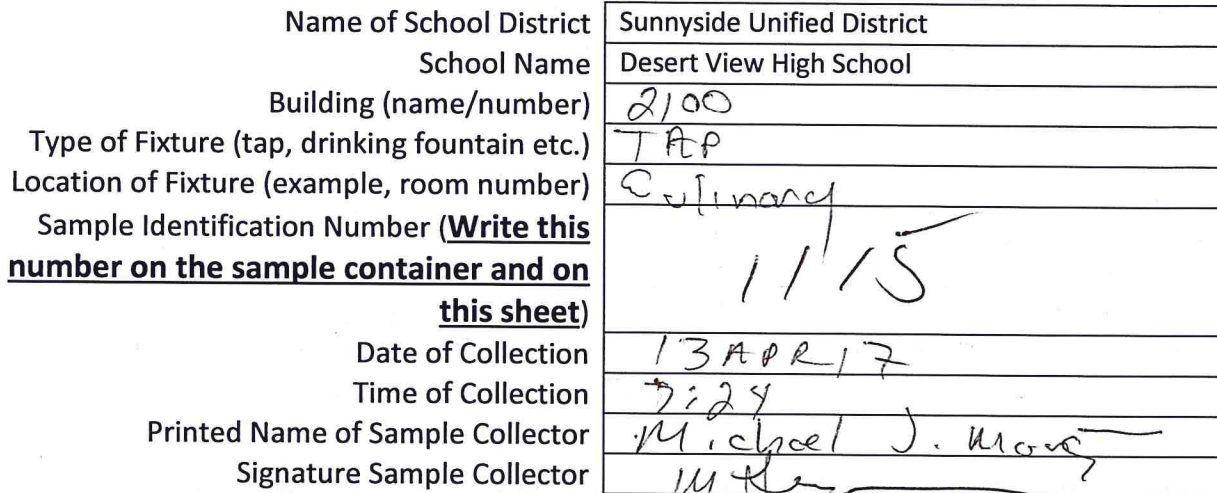 Name of School District Sunnyside Unified District
School Name Desert View High School
Building (name/number) 2100
Type of Fixture (tap, drinking fountain etc.) TAP
Location of Fixture (example, room number) Culinary
Sample Identification Number (Write this
number on the sample container and on
this sheet)
1115
Date of Collection 13APR17
Time of Collection
Printed Name of Sample Collector Michael J.
Signature Sample Collector